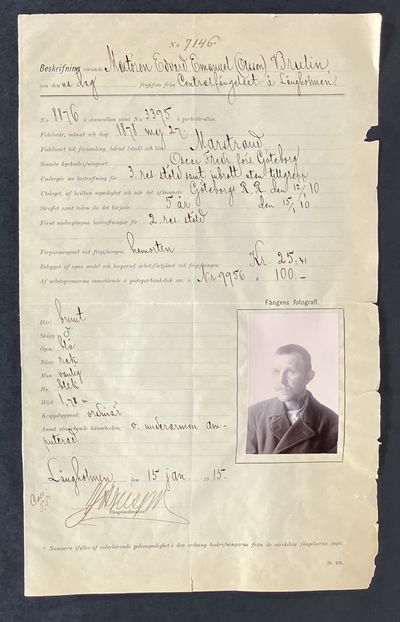 No 7146
Beskrifning rörande Montören Edvard Emanuel (Olsson) Brulin,
som den na dag frigifves från Centralfängelset å Långholmen.
N:o 8876 i stamrullan samt N:o 3395 i porträtt-rullan.
Födelseår, månad och dag: 1878 maj 27.
Födelseort till församling, härad (stad) och län: Marstrand
Senaste kyrkoskrifningsort: Oscar Fredr. förs. Göteborg
Undergår nu bestraffning för 3. resan stöld samt inbrott utan tillgrepp
Utslaget, af hvilken myndighet och när det afkunnats: Göteborgs R. R. den 12/1 10
Straffet samt tiden då det började: 5 år den 15/1 10
Förut undergångna bestraffningar för 2. resan stöld
Förpassningsort vid frigifningen: hemorten
Beloppet af egna medel och besparad arbetsförtjänst vid frigifningen: Kr. 25:41
Af arbetspremierna innestående å postsparbanksbok ser. o. Nr 9956 " 100:—
Fångens fotografi.
Hår: brunt
Skägg:
Ögon: blå
Näsa: rak
Mun: vanlig
Hy: blek
Höjd: 1,70 m
Kroppsbyggnad: ordinär
Annat utmärkande kännetecken: v. underarmen am-
puterad
Långholmen den 15 jan. 1915.
Fängelsedirektör.
* Nummern ifylles af vederbörande polismyndighet i den ordning beskrifningarna från de särskilda fängelserna ingå.